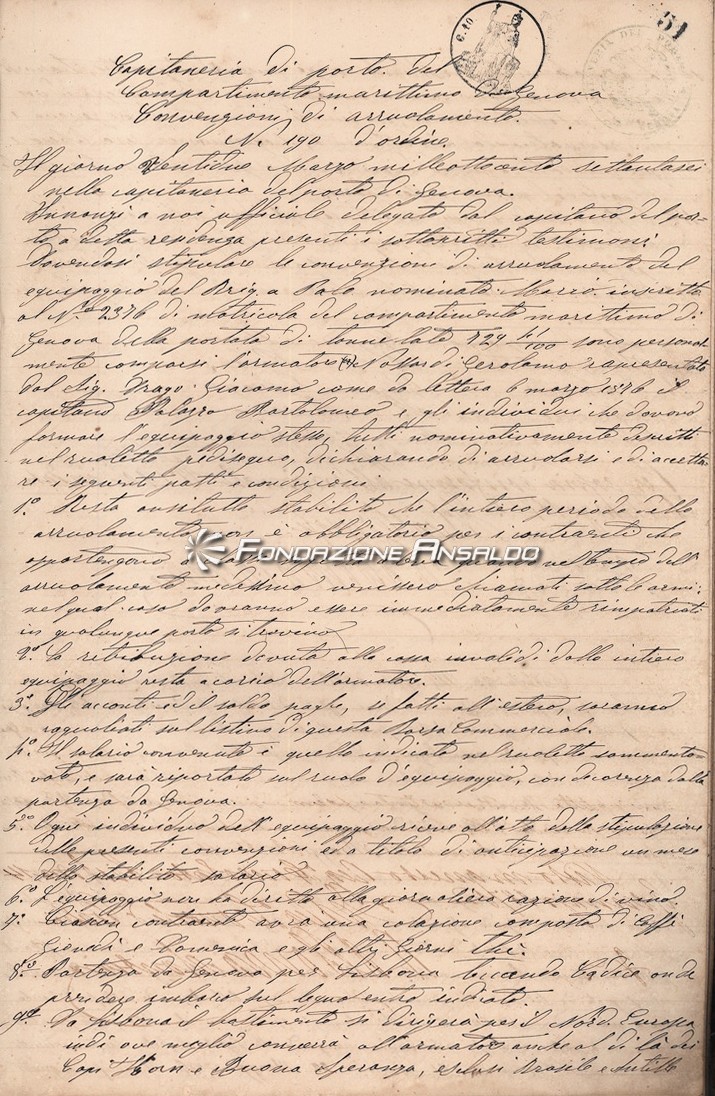 51
C. 10
Capitaneria di porto del
Compartimento marittimo di Genova
Convenzioni di arruolamento
N. 190 d'ordine
Il giorno Ventidue Marzo milleottocento settantasei
nella capitaneria del porto di Genova.
Innanzi a noi ufficiale delegato dal capitano del por-
to a detta residenza presenti i sottoscritti testimoni
Dovendosi stipulare le convenzione di arruolamento del
equipaggio del Brig. a Palo nominato Mario inscritto
al N.° 2376 di matricola del compartimento marittimo di
Genova della portata di tonnellate 729 1/100 sono personal-
mente comparsi l'armatore Gerolamo rapresentato
dal Sig. Drago Giacomo come da lettera 6 marzo 1876 il
capitano Palazzo Bartolomeo e gli individui che devono
formare l'equipaggio stesso, tutti nominativamente descritti
nel ruoletto pedisequo, dichiarando di arruolarsi e di accetta-
re i seguenti patti e condizioni
1.° Resta anzitutto stabilito che l'intiero periodo dello
arruolamento non è obbligatorio per i contraenti che
appartengono quando nel tempo dell'
arruolamento medesimo venissero chiamati sotto le armi;
nel qual caso dovranno essere immediatamente rimpatriati
in qualunque porto si trovino
2.° La retribuzione dovuta alla cassa invalidi dallo intiero
equipaggio resta a carico dell'armatore.
3.° Gli acconti ed il saldo paghe, se fatti all'estero, saranno
ragguagliati sul listino di questa Borsa Commerciale.
4.° Il salario convenuto è quello indicato nel ruoletto sommento-
vato, e sarà riportato sul ruolo d'equipaggio, con decorenza dalla
partenza da Genova.
5.° Ogni individuo dell'equipaggio riceve all'atto della stipulazione
delle presenti convenzioni ed a titolo di anticipazione un mese
dello stabilito salario
6.° L'equipaggio non ha diritto alla giornaliera razione di vino.
7.° Ciascun contraente avrà una colazione composta di Caffè
Giovedì e Domenica e gli altri giorni thè.
8.° Partenza da Genova per Lisbona toccando Cadice onde
prendere imbarco sul legno entro indicato.
9.° Da Lisbona il bastimento si dirigerà per il Nord Europa
indi ove meglio converrà all'armatore anche al di là dei
Capi Horn e Buona Speranza, esclusi Brasile e Antille
FONDAZIONE ANSALDO